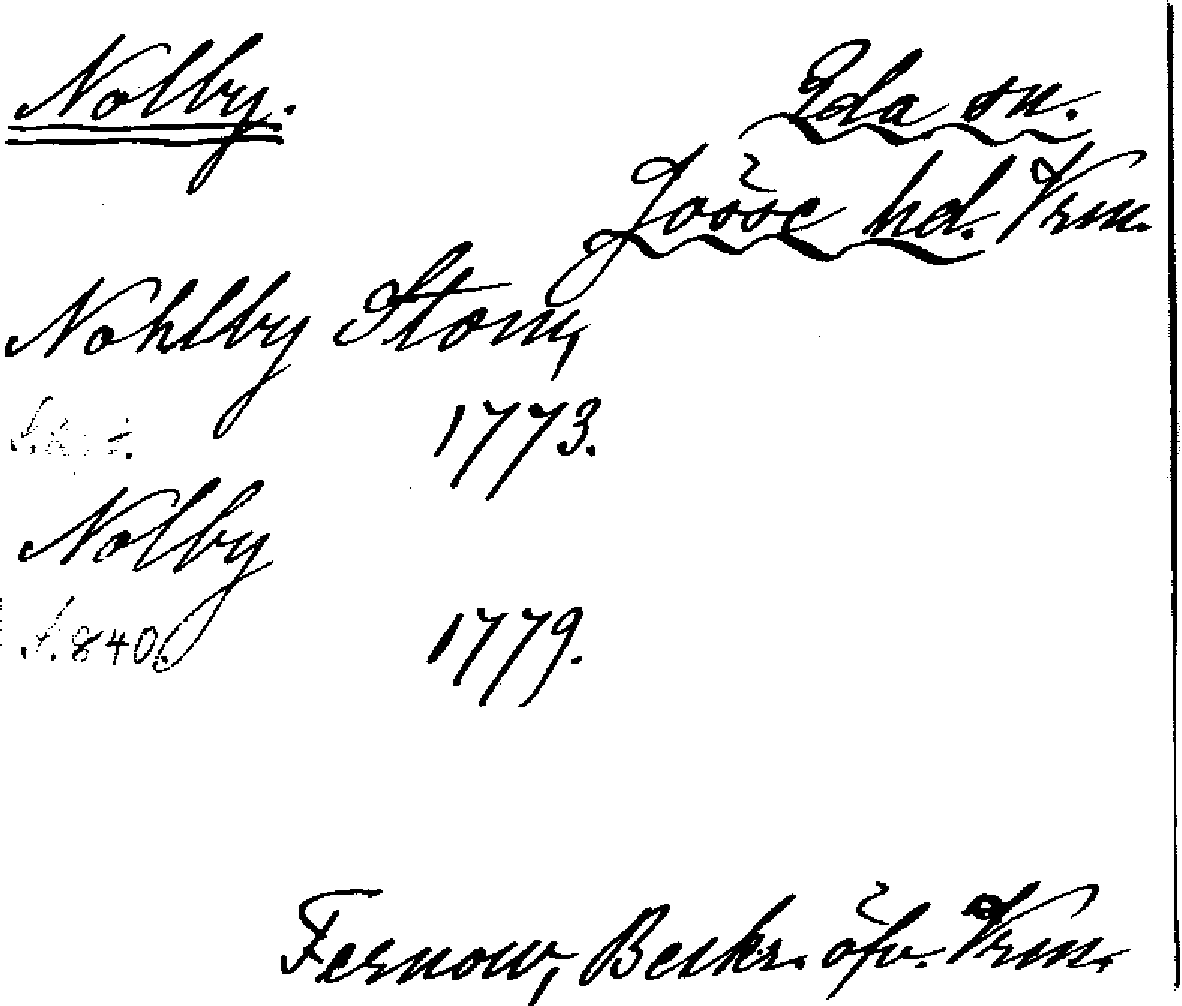 Nolby.
Eda sn.
Jösse hd. Vrm.
Nohlby Stom,
1773.
Nolby
S. 840. 1779.
Fernow, Beskr. öfv. Vrm.